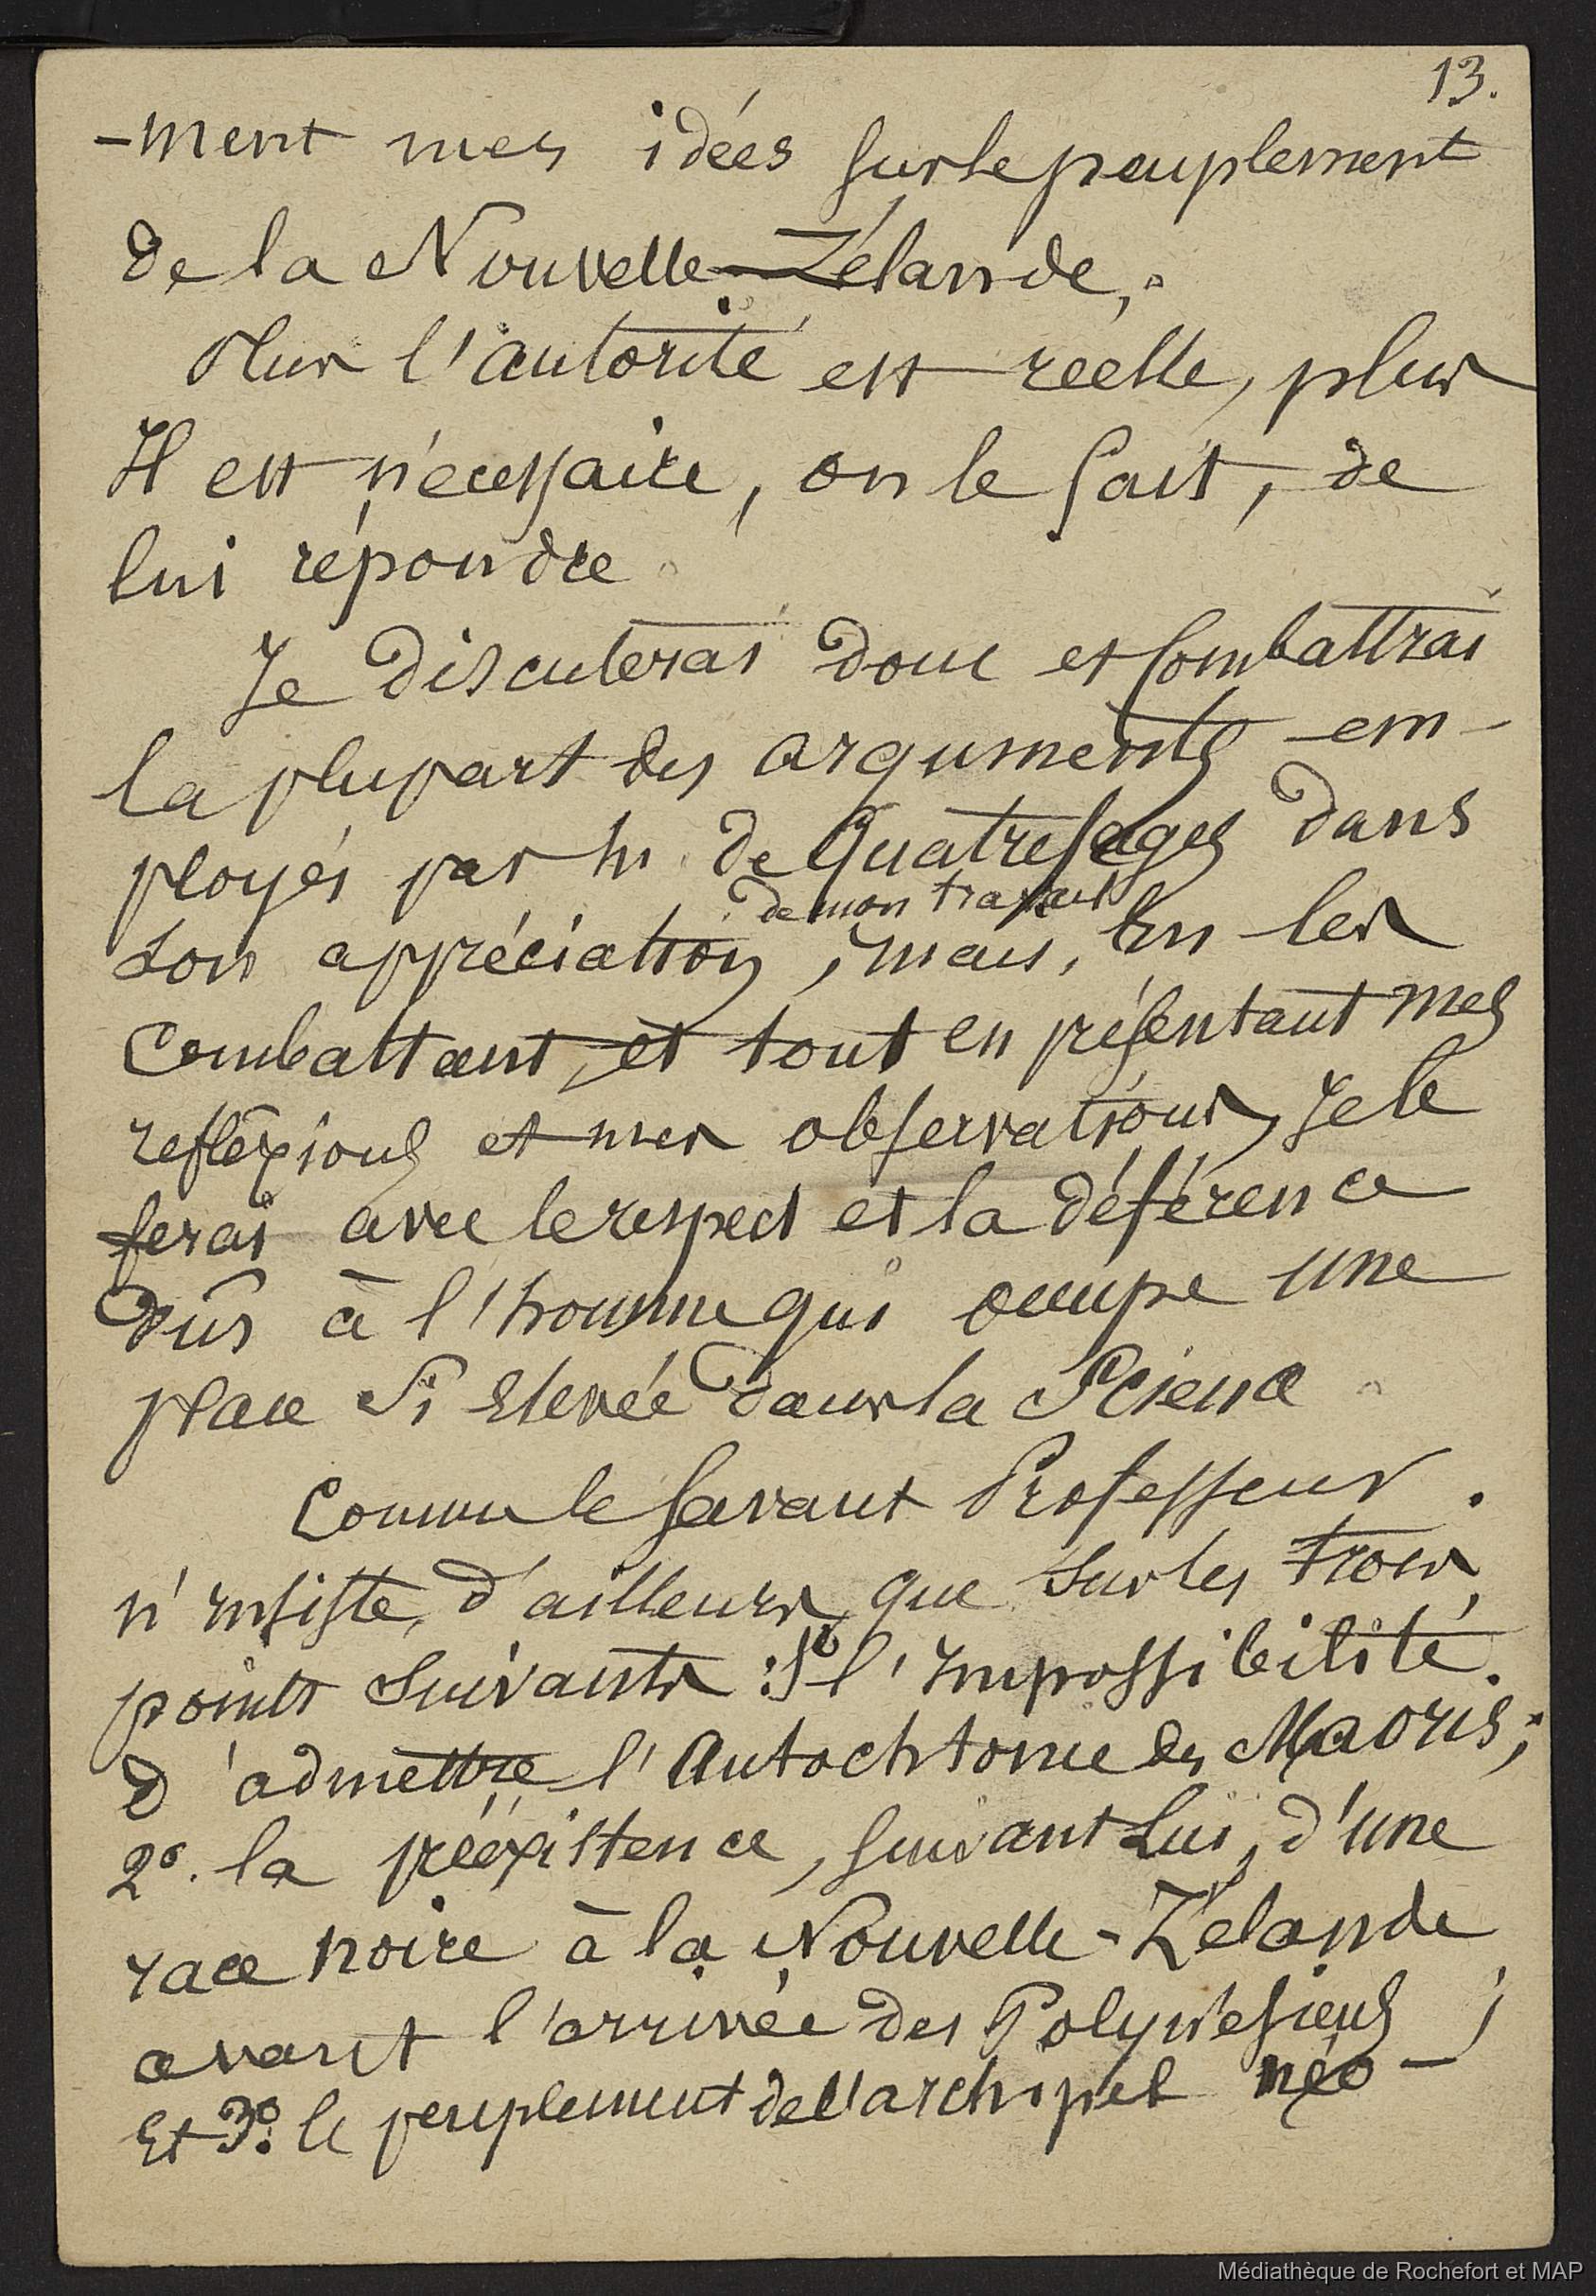 13.
-ment mes idées sur le peuplement
de la Nouvelle-Zélande.
Plus l'autorité est réelle, plus
Il est nécessaire, on le sait, de
lui répondre.
Je discuterai donc et combattrai
la plupart des arguments em-
ployés par M. de Quatrefages dans
de mon travail
son appréciation, mais, en les
combattant, et tout en présentant mes
refléxions et mes observations, Je le
ferai avec le respect et la déférence
dûs à l'homme qui occupe une
place si élevée dans la Science.
Comme le savant Professeur
n'insiste, d'ailleurs, que sur les trois
points suivants : 1º l'Impossibilité
d'admettre l'Autochtonie des Maoris ;
2º. la préexistence, suivant Lui, d'une
race noire à la Nouvelle-Zélande
avant l'arrivée des Polynésiens ;
Et 3º. le peuplement de l'archipel néo-
Médiathèque de Rochefort et MAP